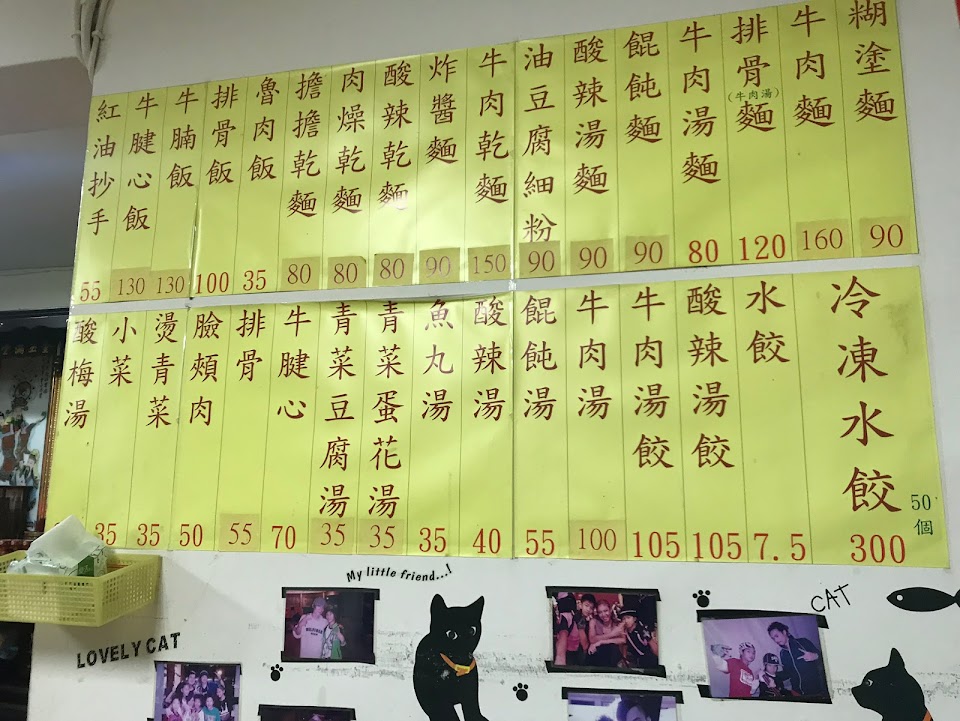 糊塗麵 90
牛肉麵 160
排骨(牛肉湯)麵 120
牛肉湯麵 80
餛飩麵 90
酸辣湯麵 90
油豆腐細粉 90
牛肉乾麵 150
炸醬麵 90
酸辣乾麵 80
肉燥乾麵 80
擔擔乾麵 80
魯肉飯 35
排骨飯 100
牛腩飯 130
牛腱心飯 130
紅油抄手 55
冷凍水餃 50個 300
水餃 7.5
酸辣湯餃 105
牛肉湯餃 105
牛肉湯 100
餛飩湯 55
酸辣湯 40
魚丸湯 35
青菜蛋花湯 35
青菜豆腐湯 35
牛腱心 70
排骨 55
臉頰肉 50
燙青菜 35
小菜 35
酸梅湯
My little friend...!
CAT
LOVELY CAT